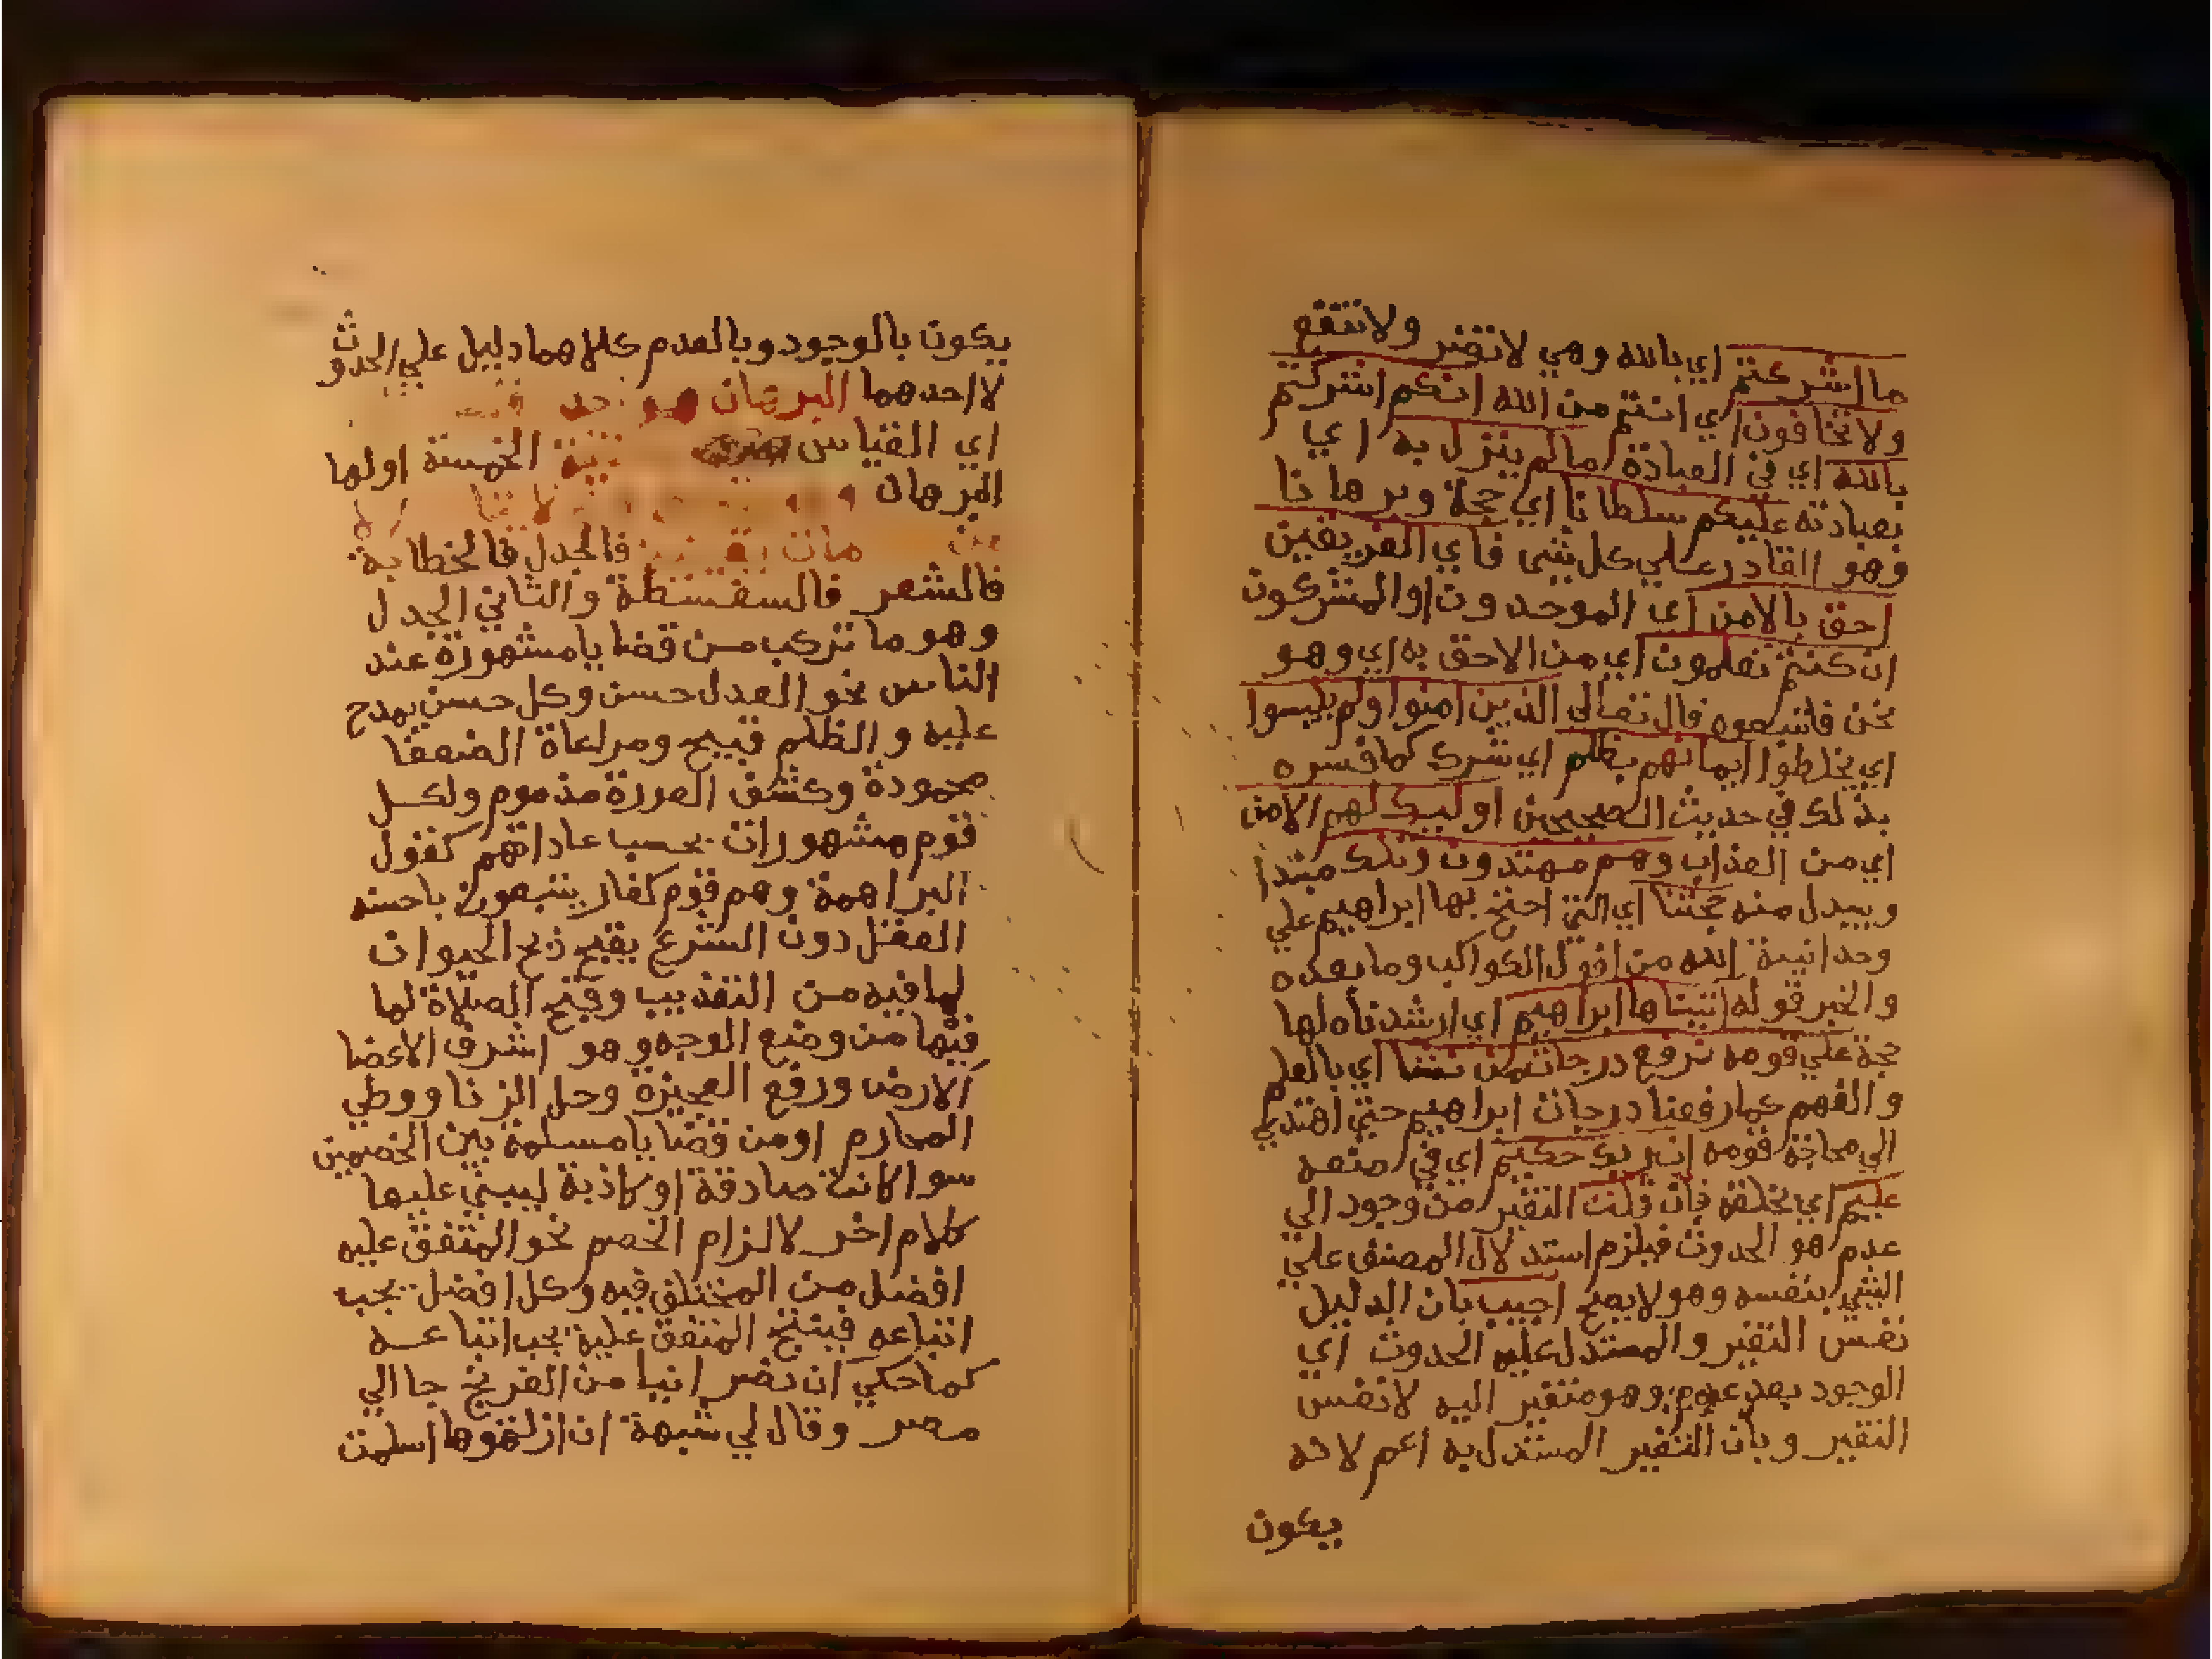 ما اشركتم اي بالله وهي لا تضر ولا تنفع
ولا تخافون اي انتم من الله انكم اشركتم
بالله اي في العبادة ما لم ينزل به اي
بعبادته عليكم سلطانا اي حجة وبرهانا
وهو القادر علي كل شي فاي الفريقين
احق بالامن اي الموحدون او المشركون
ان كنتم تعلمون اي من الاحق به اي وهو
نحن فاتبعوه قال تعالي الذين امنوا ولم يلبسوا
اي يخلطوا ايمانهم بظلم اي شرك كما فسره
بذلك في حديث الصحيحين اوليك لهم الامن
اي من العذاب وهم مهتدون وتلك مبتدا
ويبدل منه حجتنا اي التي احتج بها ابراهيم علي
وحدانية الله من افول الكواكب وما بعده
والخبر قوله اتيناها ابراهيم اي ارشدناه لها
حجة علي قومه نرفع درجات من نشا اي بالعلم
والفهم كما رفعنا درجات ابراهيم حتي اهتدي
الي محاجة قومه ان ربك حكيم اي في صنعه
عليم اي بخلقه فان قلت التغير من وجود الي
عدم هو الحدوث فيلزم استدلال المصنف علي
الشي بنفسه وهو لا يصح اجيب بان الدليل
نفس التغير والمستدل عليه الحدوث اي
الوجود بعد عدم وهو متغير اليه لا نفس
التغير وبان التغير المستدل به اعم لانه
يكون
يكون بالوجود وبالعدم كلاهما دليل علي الحدوث
لا احدهما البرهان هو احد
اي القياس الخمسة اولها
البرهان
من فالجدل فالخطابة
فالشعر فالسفسطة والثاني الجدل
وهو ما تركب من قضايا مشهورة عند
الناس نحو العدل حسن وكل حسن يمدح
عليه والظلم قبيح ومراعاة الضعفا
محمودة وكشف العورة مذموم ولكل
قوم مشهورات بحسب عاداتهم كقول
البراهمة وهم قوم كفار يتبعون
العقل دون الشرع يقبح ذبح الحيوان
لما فيه من التعذيب وقبح الصلاة لما
فيها من وضع الوجه وهو اشرف الاعضا
الارض ورفع العجيزة وحل الزنا ووطي
المحارم او من قضايا مسلمة بين الخصمين
سوا كانت صادقة او كاذبة ليبني عليها
كلام اخر لالزام الخصم نحو المتفق عليه
افضل من المختلف فيه وكل افضل يجب
اتباعه فينتج المتفق عليه يجب اتباعه
كما حكي ان نصرانيا من الفرنج جا الي
مصر وقال لي شبهة ان ازلتموها اسلمت